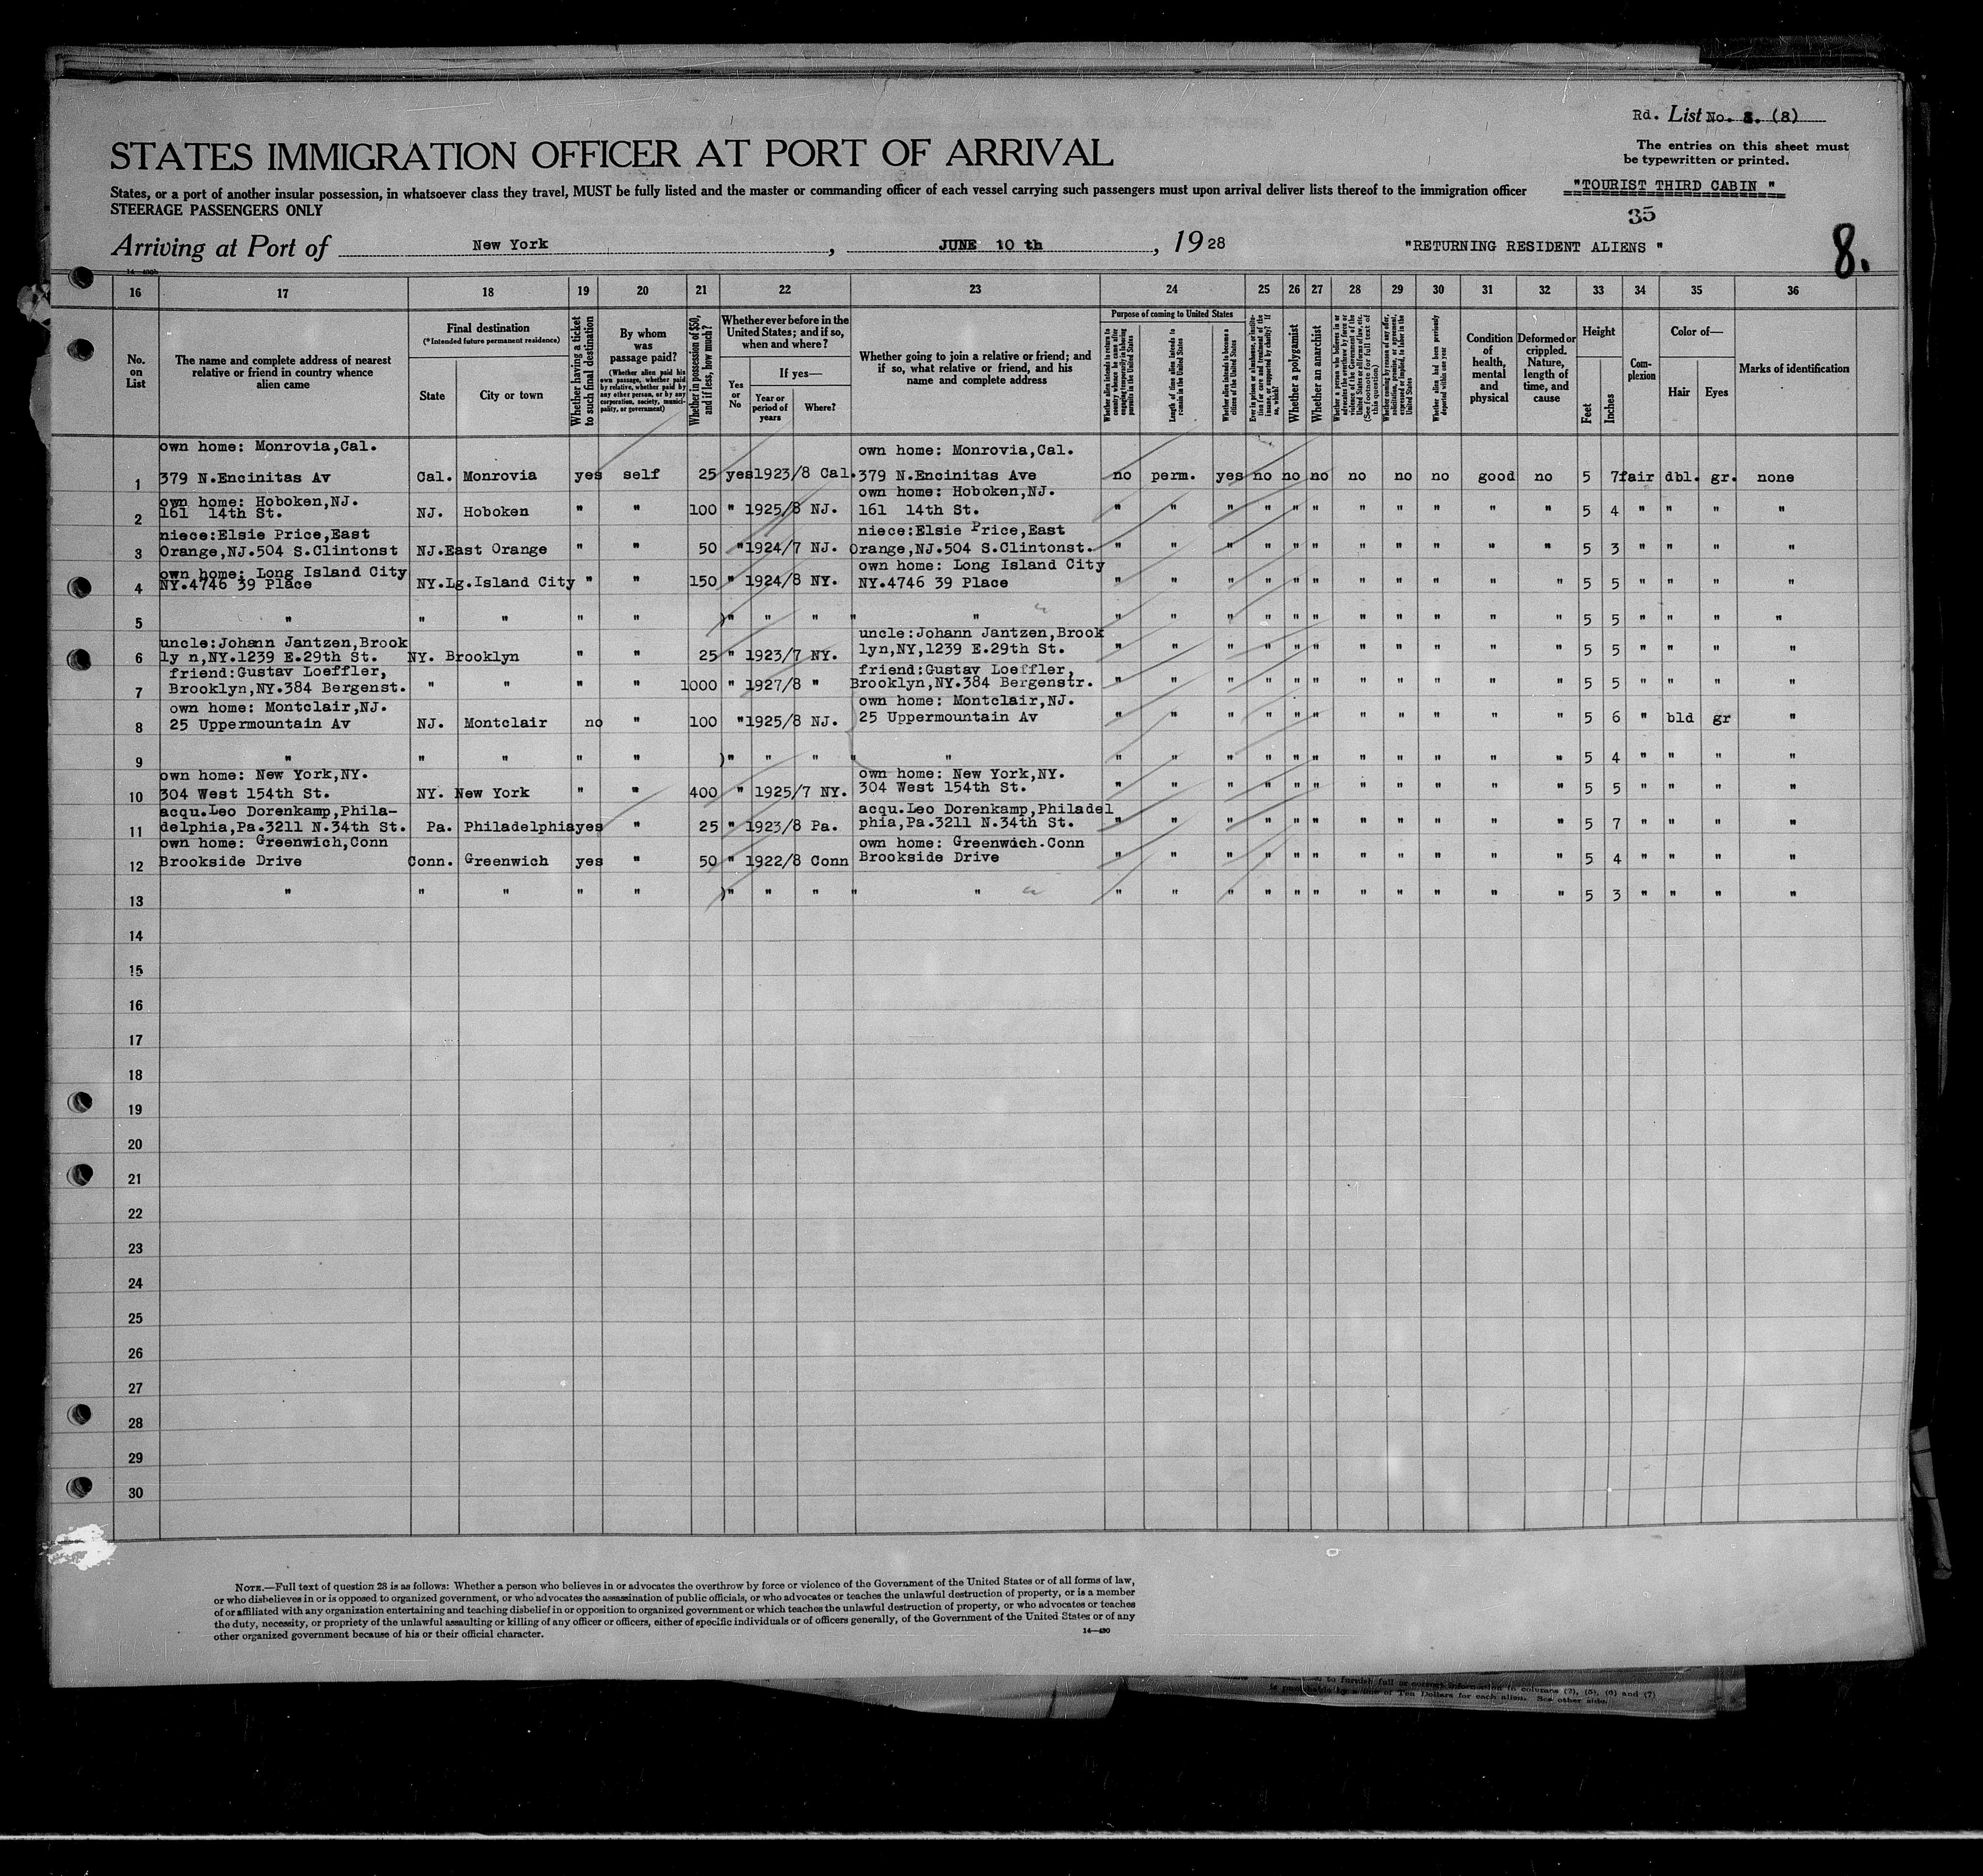 Rd. List No. 8. (8)
The entries on this sheet must
be typewritten or printed.
STATES IMMIGRATION OFFICER AT PORT OF ARRIVAL
States, or a port of another insular possession, in whatsoever class they travel, MUST be fully listed and the master or commanding officer of each vessel carrying such passengers must upon arrival deliver lists thereof to the immigration officer
STEERAGE PASSENGERS ONLY
"TOURIST THIRD CABIN "
35
Arriving at Port of New York, JUNE 10 th, 1928
"RETURNING RESIDENT ALIENS "
8.
16 17 18 19 20 21 22 23 24 25 26 27 28 29 30 31 32 33 34 35 36
No. on List
The name and complete address of nearest relative or friend in country whence alien came
Final destination
(*Intended future permanent residence)
State
City or town
Whether having a ticket to such final destination
By whom was passage paid?
(Whether alien paid his own passage, whether paid by relative, whether paid by any other person, or by any corporation, society, municipality, or government)
Whether in possession of $50, and if less, how much?
Whether ever before in the United States; and if so, when and where?
Yes or No
If yes—
Year or period of years
Where?
Whether going to join a relative or friend; and if so, what relative or friend, and his name and complete address
Purpose of coming to United States
Whether alien intends to return to country whence he came after engaging temporarily in laboring pursuits in the United States
Length of time alien intends to remain in the United States
Whether alien intends to become a citizen of the United States
Ever in prison or almshouse, or institution for care and treatment of the insane, or supported by charity? If so, which?
Whether a polygamist
Whether an anarchist
Whether a person who believes in or advocates the overthrow by force or violence of the Government of the United States or all forms of law, etc. (See footnote for full text of this question)
Whether coming by reason of any offer, solicitation, promise, or agreement, expressed or implied, to labor in the United States
Whether alien had been previously deported within one year
Condition of health, mental and physical
Deformed or crippled. Nature, length of time, and cause
Height
Feet
Inches
Complexion
Color of—
Hair
Eyes
Marks of identification
own home: Monrovia,Cal. own home: Monrovia,Cal.
1 379 N.Encinitas Av Cal. Monrovia yes self 25 yes 1923/8 Cal. 379 N.Encinitas Ave no perm. yes no no no no no no good no 5 7 fair dbl. gr. none
own home: Hoboken,NJ. own home: Hoboken,NJ.
2 161 14th St. NJ. Hoboken " " 100 " 1925/8 NJ. 161 14th St. " " " " " " " " " " " 5 4 " " " "
niece:Elsie Price,East niece:Elsie Price,East
3 Orange,NJ.504 S.Clintonst NJ.East Orange " " 50 " 1924/7 NJ. Orange,NJ.504 S.Clintonst. " " " " " " " " " " " 5 3 " " " "
own home: Long Island City own home: Long Island City
4 NY.4746 39 Place NY.Lg.Island City " " 150 " 1924/8 NY. NY.4746 39 Place " " " " " " " " " " " 5 5 " " " "
5 " " " " " )" " " " " " " " " " " " " " " " 5 5 " " " "
uncle:Johann Jantzen,Brook uncle:Johann Jantzen,Brook
6 ly n,NY.1239 E.29th St. NY. Brooklyn " " 25 " 1923/7 NY. lyn,NY,1239 E.29th St. " " " " " " " " " " " 5 5 " " " "
friend:Gustav Loeffler, friend:Gustav Loeffler,
7 Brooklyn,NY.384 Bergenst. " " " " 1000 " 1927/8 " Brooklyn,NY.384 Bergenstr. " " " " " " " " " " " 5 5 " " " "
own home: Montclair,NJ. own home: Montclair,NJ.
8 25 Uppermountain Av NJ. Montclair no " 100 " 1925/8 NJ. 25 Uppermountain Av " " " " " " " " " " " 5 6 " bld gr "
9 " " " " " )" " " " " " " " " " " " " " " " 5 4 " " " "
own home: New York,NY. own home: New York,NY.
10 304 West 154th St. NY. New York " " 400 " 1925/7 NY. 304 West 154th St. " " " " " " " " " " " 5 5 " " " "
acqu.Leo Dorenkamp,Phila- acqu.Leo Dorenkamp,Philadel
11 delphia,Pa.3211 N.34th St. Pa. Philadelphia yes " 25 " 1923/8 Pa. phia,Pa.3211 N.34th St. " " " " " " " " " " " 5 7 " " " "
own home: Greenwich,Conn own home: Greenwich.Conn
12 Brookside Drive Conn. Greenwich yes " 50 " 1922/8 Conn Brookside Drive " " " " " " " " " " " 5 4 " " " "
13 " " " " " )" " " " " " " " " " " " " " " " 5 3 " " " "
14
15
16
17
18
19
20
21
22
23
24
25
26
27
28
29
30
NOTE.—Full text of question 28 is as follows: Whether a person who believes in or advocates the overthrow by force or violence of the Government of the United States or of all forms of law,
or who disbelieves in or is opposed to organized government, or who advocates the assassination of public officials, or who advocates or teaches the unlawful destruction of property, or is a member
of or affiliated with any organization entertaining and teaching disbelief in or opposition to organized government or which teaches the unlawful destruction of property, or who advocates or teaches
the duty, necessity, or propriety of the unlawful assaulting or killing of any officer or officers, either of specific individuals or of officers generally, of the Government of the United States or of any
other organized government because of his or their official character.
14—490
to furnish full or correct information in columns (2), (5), (6) and (7)
is punishable by a fine of Ten Dollars for each alien. See other side.